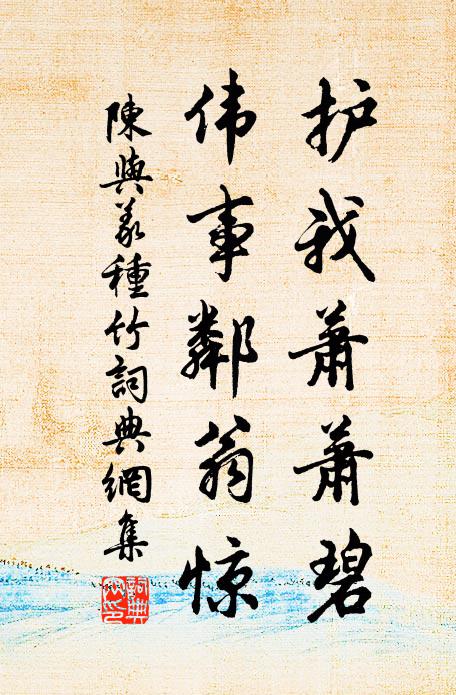 护我萧萧碧
伟事鄰翁惊
陳與義種竹詞典網集